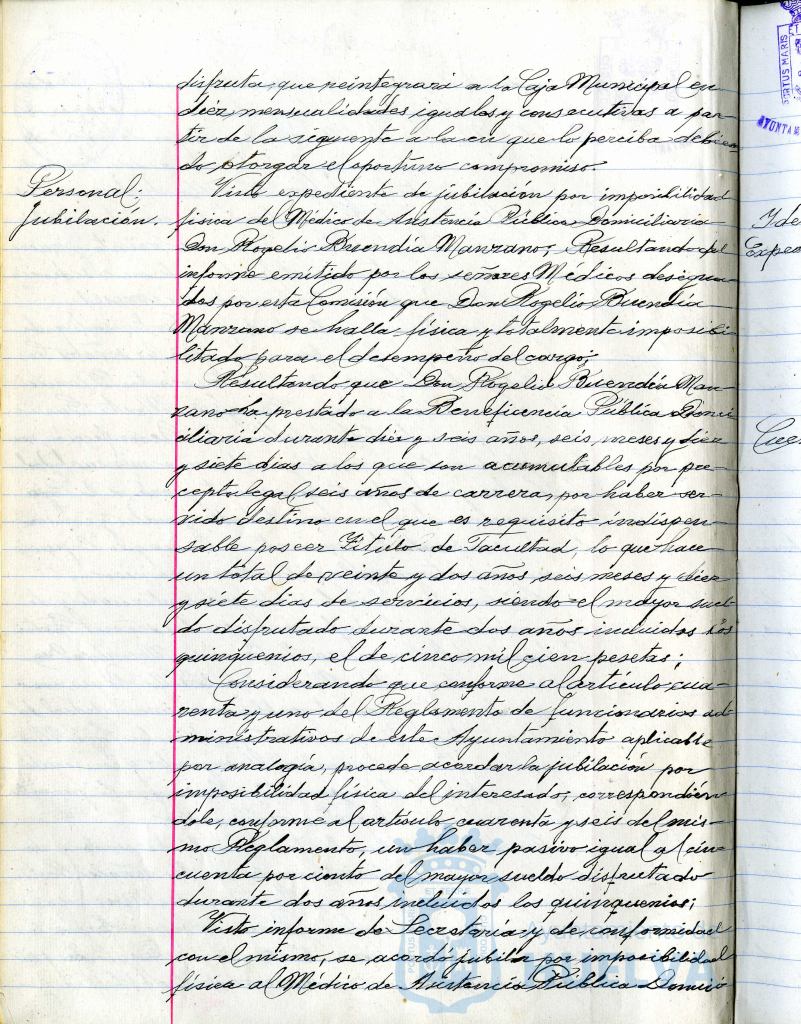 disfruta, que reintegrará a la Caja Municipal en
diez mensualidades iguales y consecutivas a par-
tir de la siguiente a la en que lo perciba debien-
do otorgar el oportuno compromiso.
Personal:
Jubilación.
Visto expediente de jubilación por imposibilidad
física del Médico de Asistencia Pública Domiciliaria
Don Rogelio Buendía Manzano; Resultando del
informe emitido por los señores Médicos designa-
dos por esta Comisión que Don Rogelio Buendía
Manzano se halla física y totalmente imposibi-
litado para el desempeño del cargo;
Resultando que Don Rogelio Buendía Man-
zano ha prestado a la Beneficencia Pública Domi-
ciliaria durante diez y seis años, seis meses y diez
y siete dias a los que son acumutables por pre-
cepto legal seis años de carrera, por haber ser-
vido destino en el que es requisito indispen-
sable poseer Título de Facultad, lo que hace
un total de veinte y dos años, seis meses y diez
y siete dias de servicios, siendo el mayor suel-
do disfrutado durante dos años incluidos los
quinquenios, el de cinco mil cien pesetas;
Considerando que conforme al artículo cua-
renta y uno del Reglamento de funcionarios ad-
ministrativos de este Ayuntamiento aplicable
por analogía, procede acordar la jubilación por
imposibilidad física del interesado, correspondién-
dole, conforme al artículo cuarenta y seis del mis-
mo Reglamento, un haber pasivo igual al cin-
cuenta por ciento del mayor sueldo disfrutado
durante dos años incluidos los quinquenios;
Visto informe de Secretaría y de conformidad
con el mismo, se acordó jubilar por imposibilidad
física al Médico de Asistencia Pública Domici-
HUELVA
Y de
Exped
PORTUS MARIS
AYUNTAM